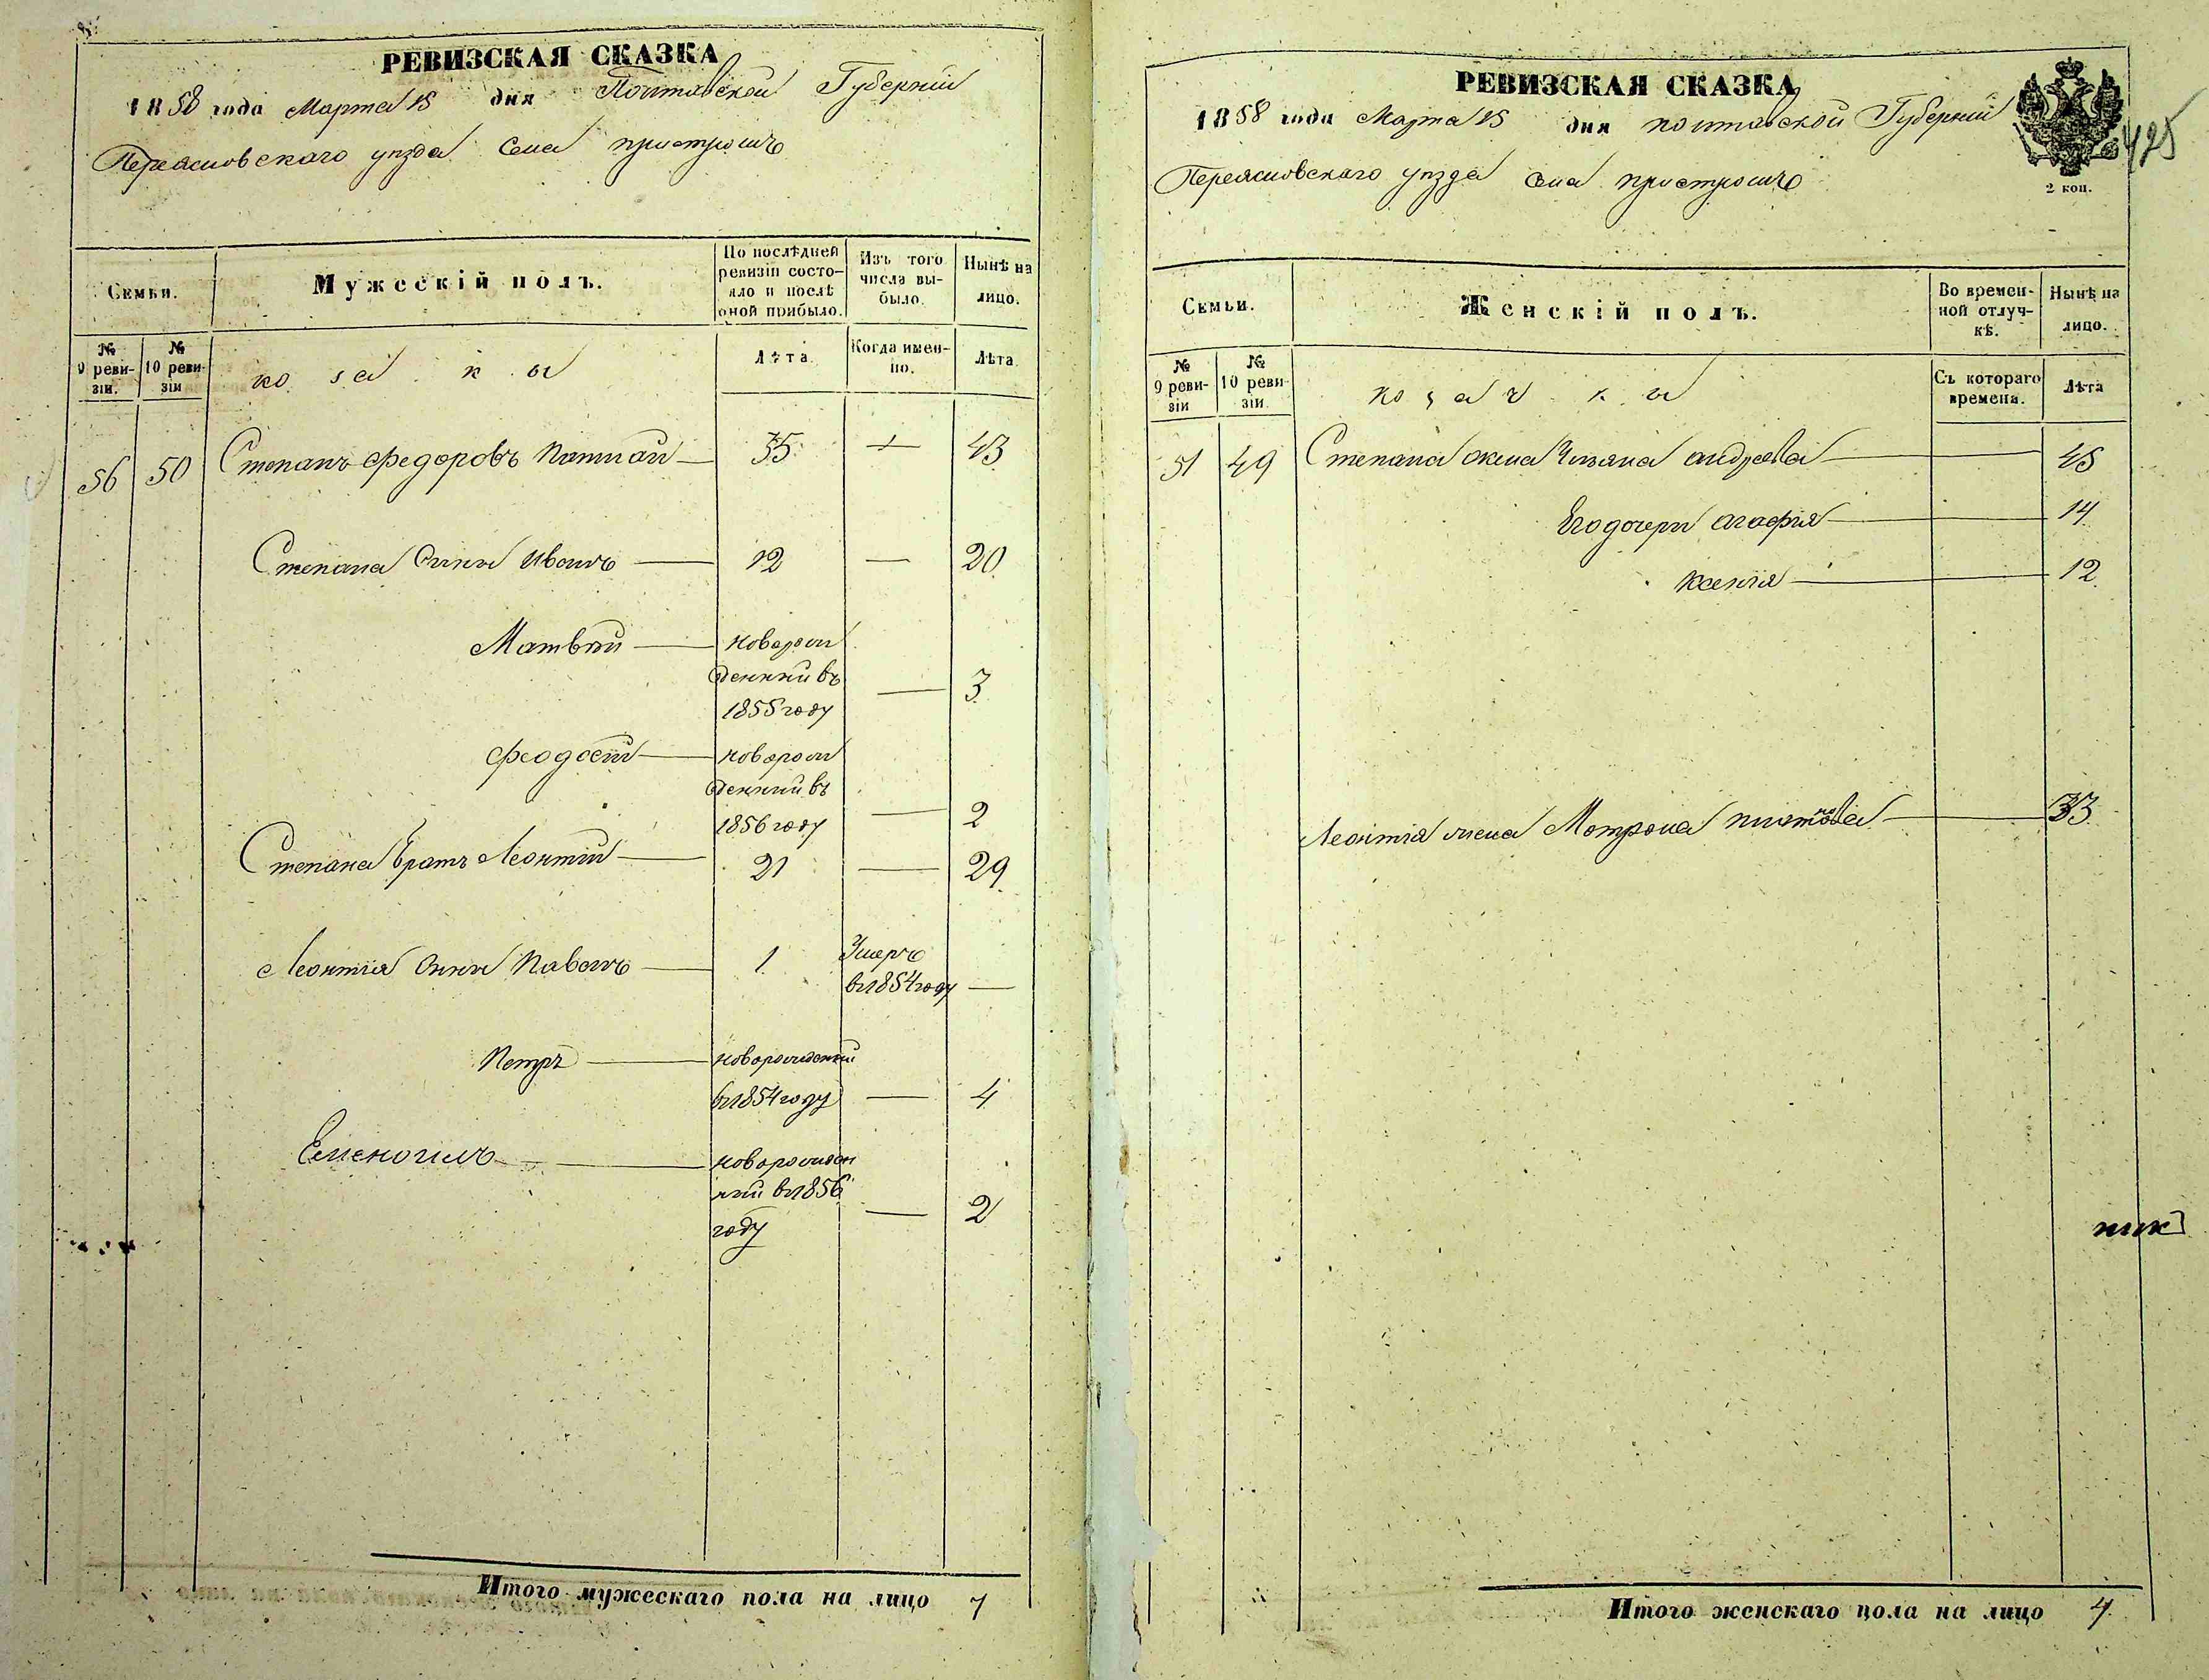 РЕВИЗСКАЯ СКАЗКА
1858 года Марта 15 дня Полтавской Губерніи
Переяславского уезда Села
Семьи.
Мужескій полъ.
По послѣдней ревизіи состо-
яло и послѣ
оной прибыло.
Изъ того
числа вы-
было.
Нынѣ на
лицо.
№
9 реви-
зіи.
№
10 реви-
зіи
козаки
Лѣта
Когда имен-
но.
Лѣта
56 50 Степанъ Федоровъ 35 43
Степана Сыны Иванъ 12 20
Матвѣй новорож
денний въ
1855 году 3
Феодосій новорож
денний въ
1856 году 2
Степана братъ Леонтій 21 29
Леонтія Сыны Павелъ 1 Умеръ
въ 1854 году
Петръ новорожденний
въ 1854 году 4
новорожден
ний въ 1856
году 2
Итого мужескаго пола на лицо 7
РЕВИЗСКАЯ СКАЗКА
1858 года Марта 15 дня полтавской Губерніи
425
Переяславского уезда Села
2 коп.
Семьи.
Женскій полъ.
Во времен-
ной отлуч-
кѣ.
Нынѣ на
лицо.
№
9 реви-
зіи
№
10 реви-
зіи.
козачки
Съ котораго
времена.
Лѣта
51 49 Степана жена андреева 45
Его дочери агафия 14
Ксенія 12
Леонтія жена Мотрона 33
Итого женскаго пола на лицо 4